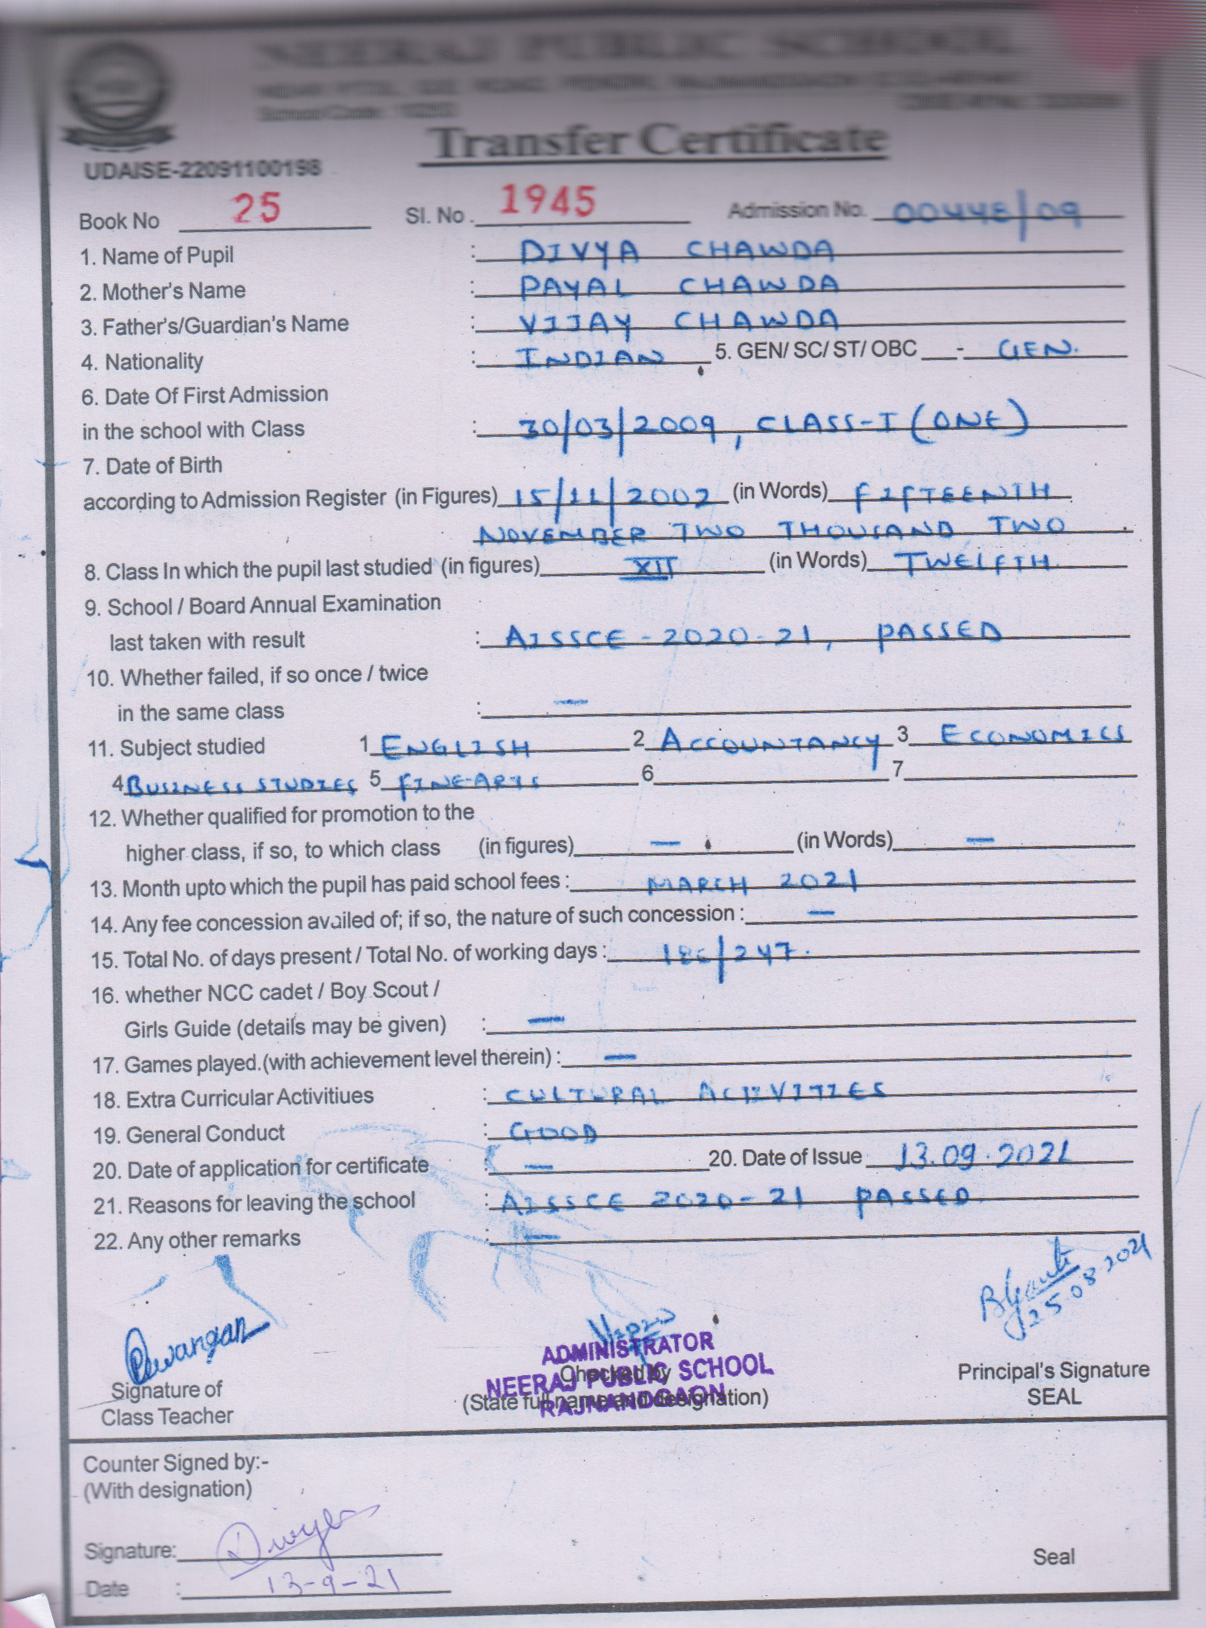 NEERAJ PUBLIC SCHOOL
School Code :
Transfer Certificate
UDAISE-22091100198
Book No 25 Sl. No. 1945 Admission No. 00448/09
1. Name of Pupil : DIVYA CHAWDA
2. Mother's Name : PAYAL CHAWDA
3. Father's/Guardian's Name : VIJAY CHAWDA
4. Nationality : INDIAN 5. GEN/ SC/ ST/ OBC - GEN.
6. Date Of First Admission
in the school with Class : 30/03/2009, CLASS-I (ONE)
7. Date of Birth
according to Admission Register (in Figures) 15/11/2002 (in Words) FIFTEENTH
NOVEMBER TWO THOUSAND TWO
8. Class In which the pupil last studied (in figures) XII (in Words) TWELFTH
9. School / Board Annual Examination
last taken with result : AISSCE - 2020-21, PASSED
10. Whether failed, if so once / twice
in the same class : —
11. Subject studied 1 ENGLISH 2 ACCOUNTANCY 3 ECONOMICS
4 BUSINESS STUDIES 5 FINE ARTS 6 7
12. Whether qualified for promotion to the
higher class, if so, to which class (in figures) — (in Words) —
13. Month upto which the pupil has paid school fees : MARCH 2021
14. Any fee concession availed of; if so, the nature of such concession : —
15. Total No. of days present / Total No. of working days : /247.
16. whether NCC cadet / Boy Scout /
Girls Guide (details may be given) : —
17. Games played.(with achievement level therein) : —
18. Extra Curricular Activitiues : CULTURAL ACTIVITIES
19. General Conduct : GOOD
20. Date of application for certificate : — 20. Date of Issue 13.09.2021
21. Reasons for leaving the school : AISSCE 2020-21 PASSED.
22. Any other remarks : —
Dewangan
25.08.2021
ADMINISTRATOR
NEERAJ PUBLIC SCHOOL
RAJNANDGAON
Checked by
(State full name and designation)
Signature of
Class Teacher
Principal's Signature
SEAL
Counter Signed by:-
(With designation)
Signature: Divya
Date : 13-9-21
Seal